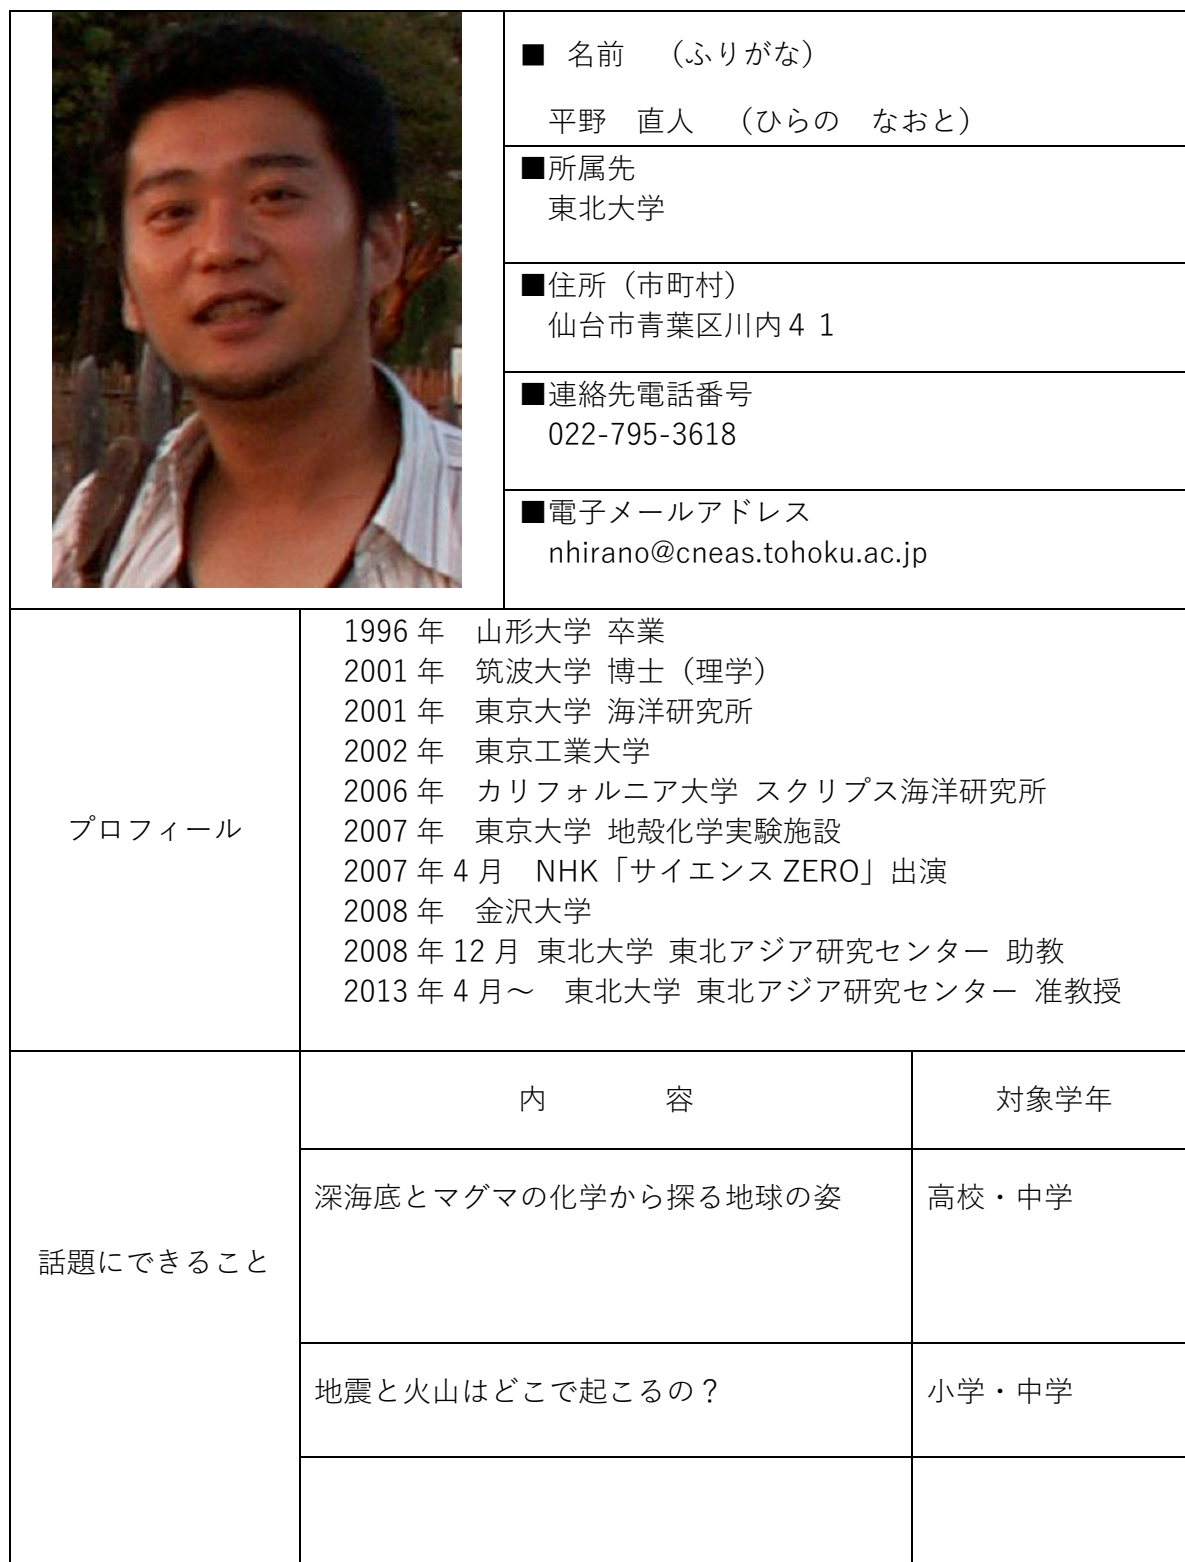 ■ 名前 （ふりがな）
平野 直人 （ひらの なおと）
■所属先
東北大学
■住所（市町村）
仙台市青葉区川内４１
■連絡先電話番号
022-795-3618
■電子メールアドレス
nhirano@cneas.tohoku.ac.jp
プロフィール
1996 年 山形大学 卒業
2001 年 筑波大学 博士（理学）
2001 年 東京大学 海洋研究所
2002 年 東京工業大学
2006 年 カリフォルニア大学 スクリプス海洋研究所
2007 年 東京大学 地殻化学実験施設
2007 年 4 月 NHK「サイエンス ZERO」出演
2008 年 金沢大学
2008 年 12 月 東北大学 東北アジア研究センター 助教
2013 年 4 月～ 東北大学 東北アジア研究センター 准教授
話題にできること
内 容
対象学年
深海底とマグマの化学から探る地球の姿
高校・中学
地震と火山はどこで起こるの？
小学・中学